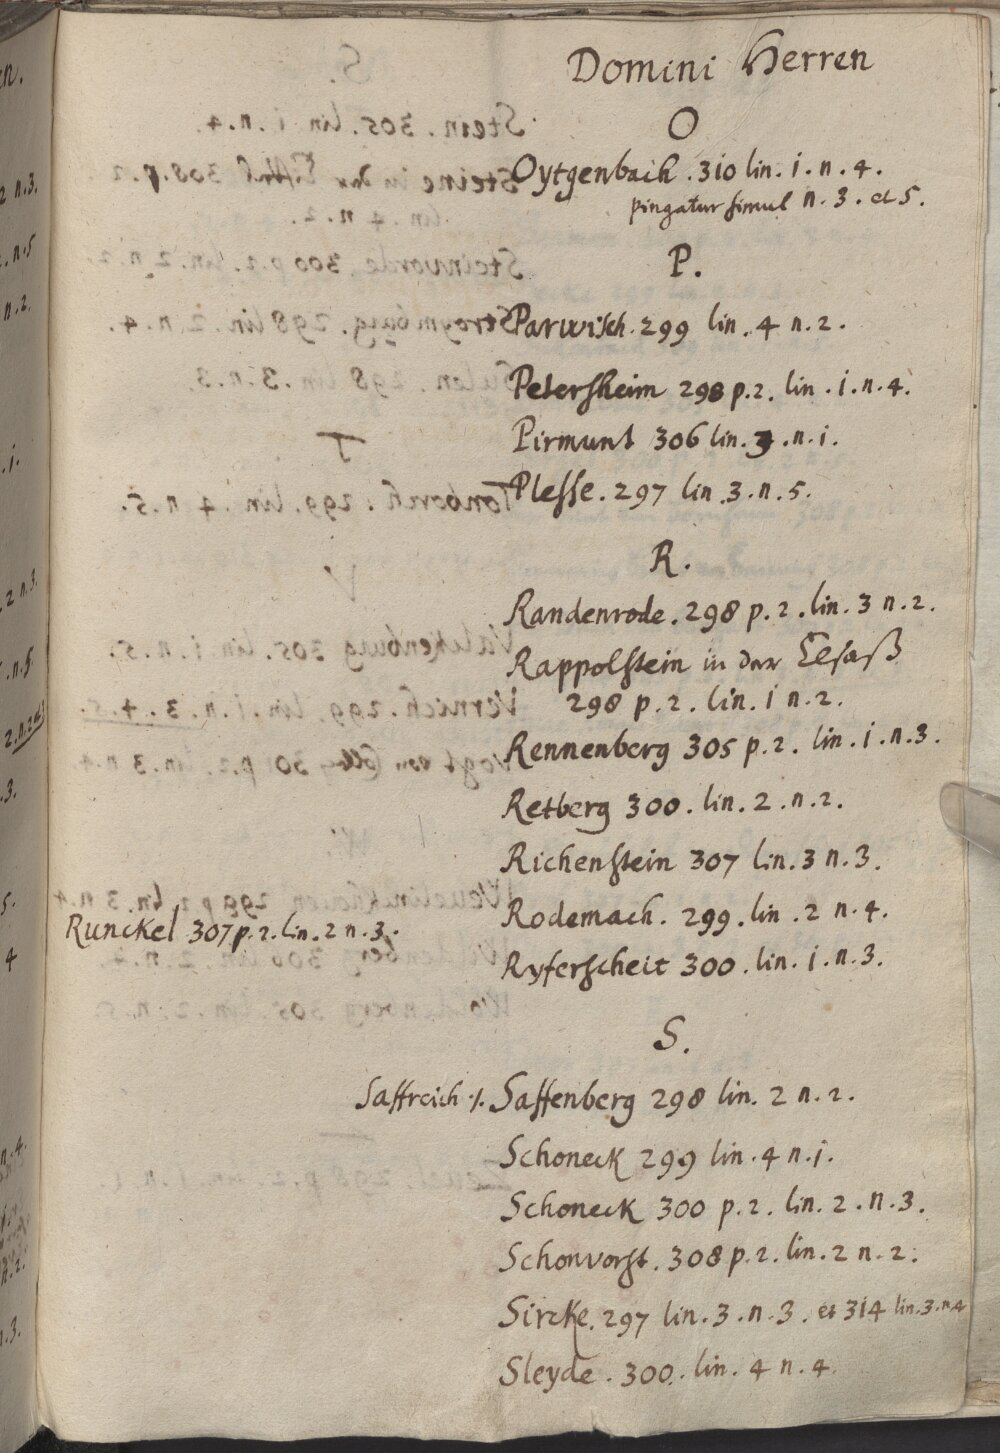 Domini Herren
O
Oytgenbach . 310 lin. i. n. 4.
pingatur simul n. 3. et 5.
P.
Parwisch. 299 lin. 4 n. 2.
Petersheim 298 p. 2. lin. i. n. 4.
Pirmunt 306 lin. 3. n. i.
Plesse. 297 lin. 3. n. 5.
R.
Randenrode. 298 p. 2. lin. 3 n. 2.
Rappolstein in der Elsaß
298 p. 2. lin. i n. 2.
Rennenberg 305 p. 2. lin. i. n. 3.
Retberg 300. lin. 2. n. 2.
Richenstein 307 lin. 3 n. 3.
Rodemach. 299. lin. 2 n. 4.
Runckel 307 p. 2. lin. 2 n. 3.
Ryferscheit 300. lin. i. n. 3.
S.
Saffreich ·/. Saffenberg 298 lin. 2 n. 2.
Schoneck 299 lin. 4 n. i.
Schoneck 300 p. 2. lin. 2. n. 3.
Schonvorst. 308 p. 2. lin. 2 n. 2.
Sircke. 297 lin. 3. n. 3. et 314 lin. 3. n. 4
Sleyde. 300. lin. 4 n. 4.